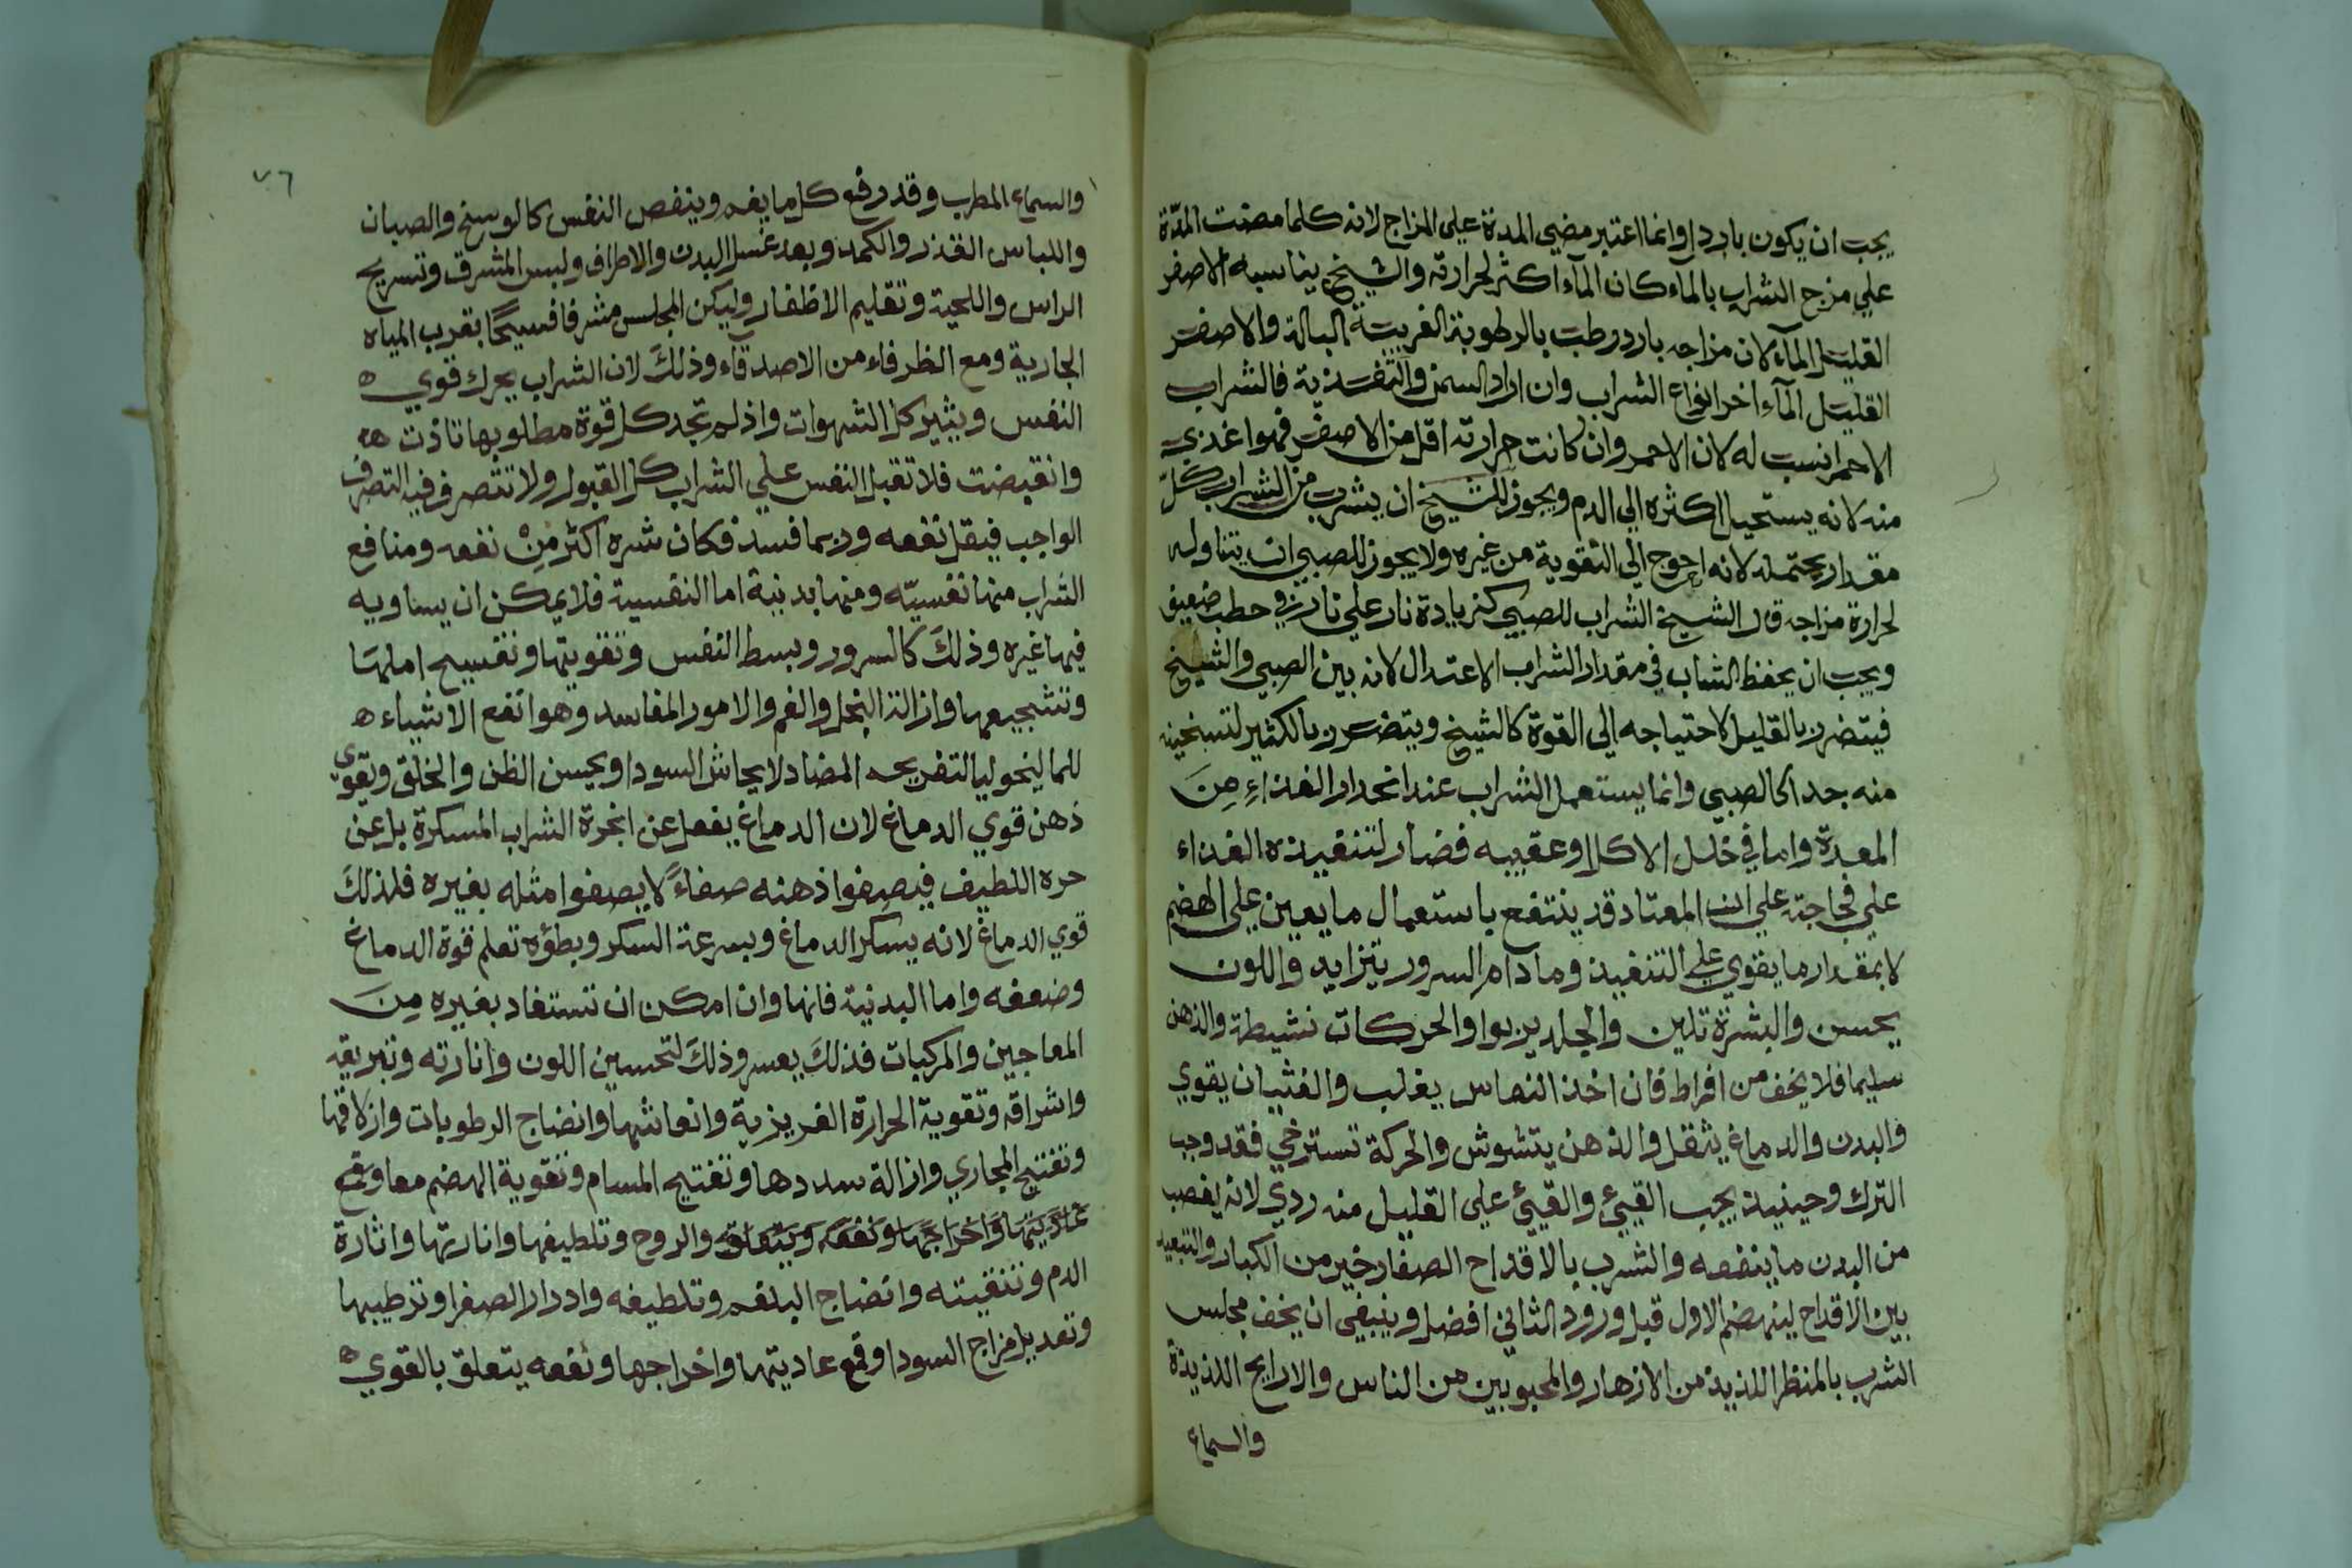 يجب ان يكون باردا وانما اعتبر مضي المدة علي المزاج لانه كلما مضت المدّة
علي مزج الشراب بالماء كان الماء اكثر لحرارته والشيخ يناسبه الاصفر
القليل المآء لان مزاجه بارد رطب بالرطوبة الغريبة البالة والاصفر
القليل المآء اخر انواع الشراب وان اراد السمن والتغذية فالشراب
الاحمر انسب له لان الاحمر وان كانت حرارته اقل من الاصفر فهو اغذي
منه لانه يستحيل اكثره الي الدم ويجوز للشيخ ان يشرب من الشراب كل
مقدار يحتمله لانه احوج الي التقوية من غيره ولا يجوز للصبي ان يتناوله
لحرارة مزاجه قال الشيخ الشراب للصبي كزيادة نار علي نار في حطب ضعيف
ويجب ان يحفظ الشاب في مقدار الشراب الاعتدال لانه بين الصبي والشيخ
فيتضرر بالقليل لاحتياجه الي القوة كالشيخ ويتضرر بالكثير لتسخينه
منه جدا كالصبي وانما يستعمل الشراب عند انحدار الغذاءِ مِنَ
المعدة واما في خلل الاكل او عقيبه فضار لتنفيذه الغذاء
علي فجاجته علي ان المعتاد قد ينتفع باستعمال ما يعين علي الهضم
لا بمقدار ما يقوي علي التنفيذ وما دام السرور يتزايد واللون
يحسن والبشرة تلين والجلد يربوا والحركات نشيطة والذهن
سليما فلا يخف من افراط فان اخذ النعاس يغلب والغثيان يقوي
والبدن والدماغ يثقل والذهن يتشوش والحركة تسترخي فقد وجب
الترك وحينيذ يجب القيئ والقيئ علي القليل منه ردي لانه يغصب
من البدن ما ينفعه والشرب بالاقداح الصغار خير من الكبار والتبعيد
بين الاقداح لينهضم الاول قبل ورود الثاني افضل وينبغي ان يخف مجلس
الشرب بالمنظر اللذيذ من الازهار والمحبوبين من الناس والارايح اللذيذة
والسماع
٧٦
والسماع المطرب وقد دفع كل ما يغم وينغص النفس كالوسخ والصبان
واللباس القذر والكمد وبعد غسل البدن والاطراف ولبس المشرق وتسريح
الراس واللحية وتقليم الاظفار وليكن المجلس مشرفا فسيحًا بقرب المياه
الجارية ومع الظرفاء من الاصدقاء وذلكَ لان الشراب يحرك قوي ه
النفس ويثير كل الشهوات واذ لم تجد كل قوة مطلوبها تاذت
وانقبضت فلا تقبل النفس علي الشراب كل القبول ولا تتصرف فيه التصرف
الواجب فيقل نفعه وربما فسد فكان شره اكثر مِنْ نفعه ومنافع
الشراب منها نفسيّه ومنها بدنية اما النفسية فلا يمكن ان يساويه
فيها غيره وذلكَ كالسرور وبسط النفس وتقويتها وتفسيح املها
وتشجيعها وازالة البخل والغم والامور المفاسد وهو انفع الاشياء ه
للماليخوليا لتفريحه المضاد لايحاش السودا ويحسن الظن والخلق ويقوي
ذهن قوي الدماغ لان الدماغ يفعل عن ابخرة الشراب المسكرة بل عن
حره اللطيف فيصفوا ذهنه صفاءً لا يصفوا مثله بغيره فلذلكَ
قوي الدماغ لانه يسكر الدماغ وبسرعة السكر وبطؤه تعلم قوة الدماغ
وضعفه واما البدنية فانها وان امكن ان تستفاد بغيره مِنَ
المعاجين والمركبات فذلكَ يعسر وذلكَ لتحسين اللون وانارته وتبريقه
واشراقه وتقوية الحرارة الغريزية وانعاشها وانضاج الرطوبات وازلاقها
وتفتيح المجاري وازالة سددها وتفتيح المسام وتقوية الهضم معا وقمع
عاديتها واخراجها ونفعه ويتعلق والروح وتلطيفها وانارتها واثارة
الدم وتنقيته وانضاج البلغم وتلطيفه وادرار الصفرا وترطيبها
وتعديل مزاج السودا وقمع عاديتها واخراجها ونفعه يتعلق بالقوي ه